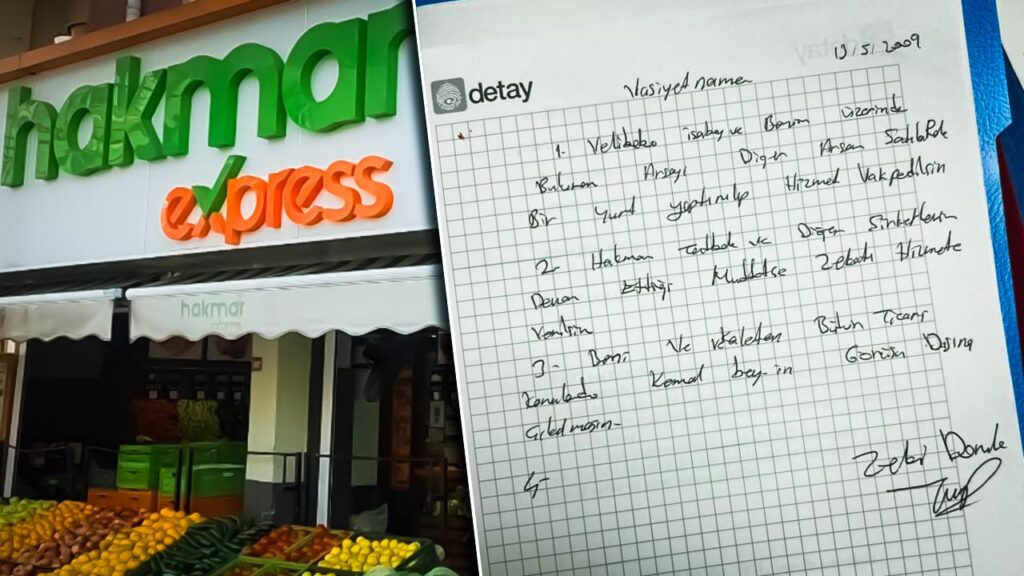 hakmar
express
hakmar
detay
2009
Vasiyet name
1. isabey ve Benim üzerimde
Bulunan Arsayı Diğer Arsam Satılarak
Bir Yurt yaptırılıp Hizmet Vakfedilsin
2 Hakmar ve Diğer Şirketlerim
Devam Ettiği Muddetçe Zekatı Hizmete
Verilsin
3. Beni ve Bütün Ticari
konularda Kemal bey-in Görüşü Dışına
Çıkılmasın-
4-
Zeki Doruk